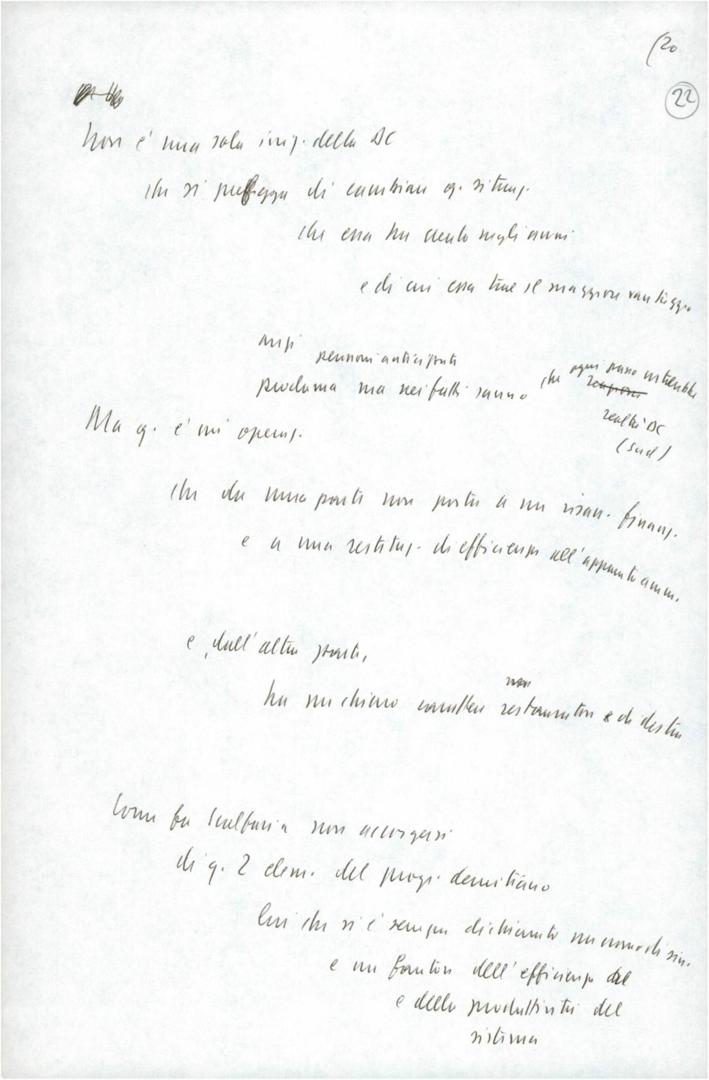 (20
22
Non è una sola iniz. della DC
che si prefigga di cambiare q. situaz.
che essa ha creato negli anni
e di cui essa trae il maggior vantaggio
anzi
pensioni anticipate
proclama ma nei fatti sanno che ogni passo
realtà DC
(sud)
Ma q. è un' operaz.
che da una parte non porta a un risan. finanz.
e a una restituz. di efficienza all'apparato amm.
e, dall'altra parte,
non
ha un chiaro carattere restauratore e di destra
Come fa Scalfari a non accorgersi
di q. 2 elem. del prog. demitiano
lui che si è sempre dichiarato un uomo di sin.
e un fautore dell'efficienza del
e della produttività del
sistema